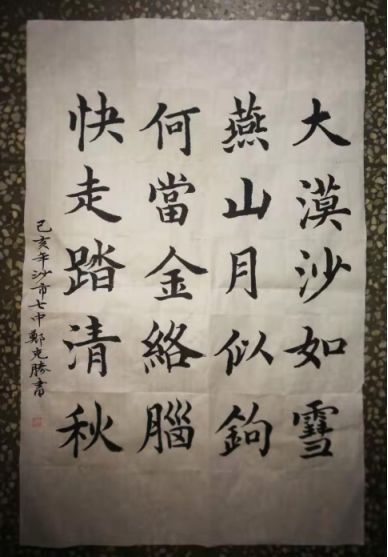 大漠沙如雪
燕山月似鉤
何當金絡腦
快走踏清秋
己亥年沙市七中鄭克勝書